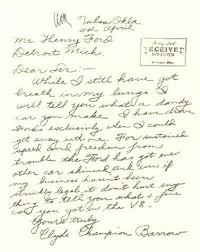 Tulsa Okla
10th April
Mr. Henry Ford
Detroit Mich.
RECEIVED
Dear Sir: -
While I still have got
breath in my lungs I
will tell you what a dandy
car you make. I have drove
Fords exclusivly when I could
get away with one. For sustained
speed and freedom from
trouble the Ford has got ever
other car skinned and even if
my business hasen't been
strickly legal it don't hurt eny
thing to tell you what a fine
car you got in the V8 -
Yours truly
Clyde Champion Barrow